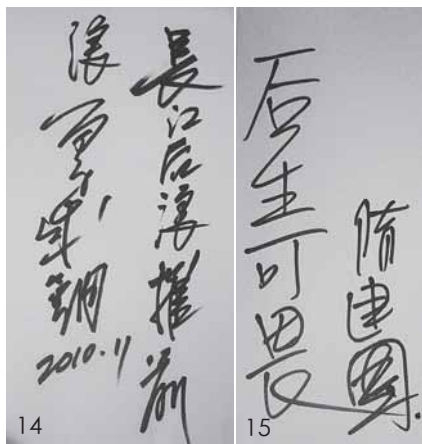 長江后浪推前
浪
2010.11
14
后生可畏
隋建國
15